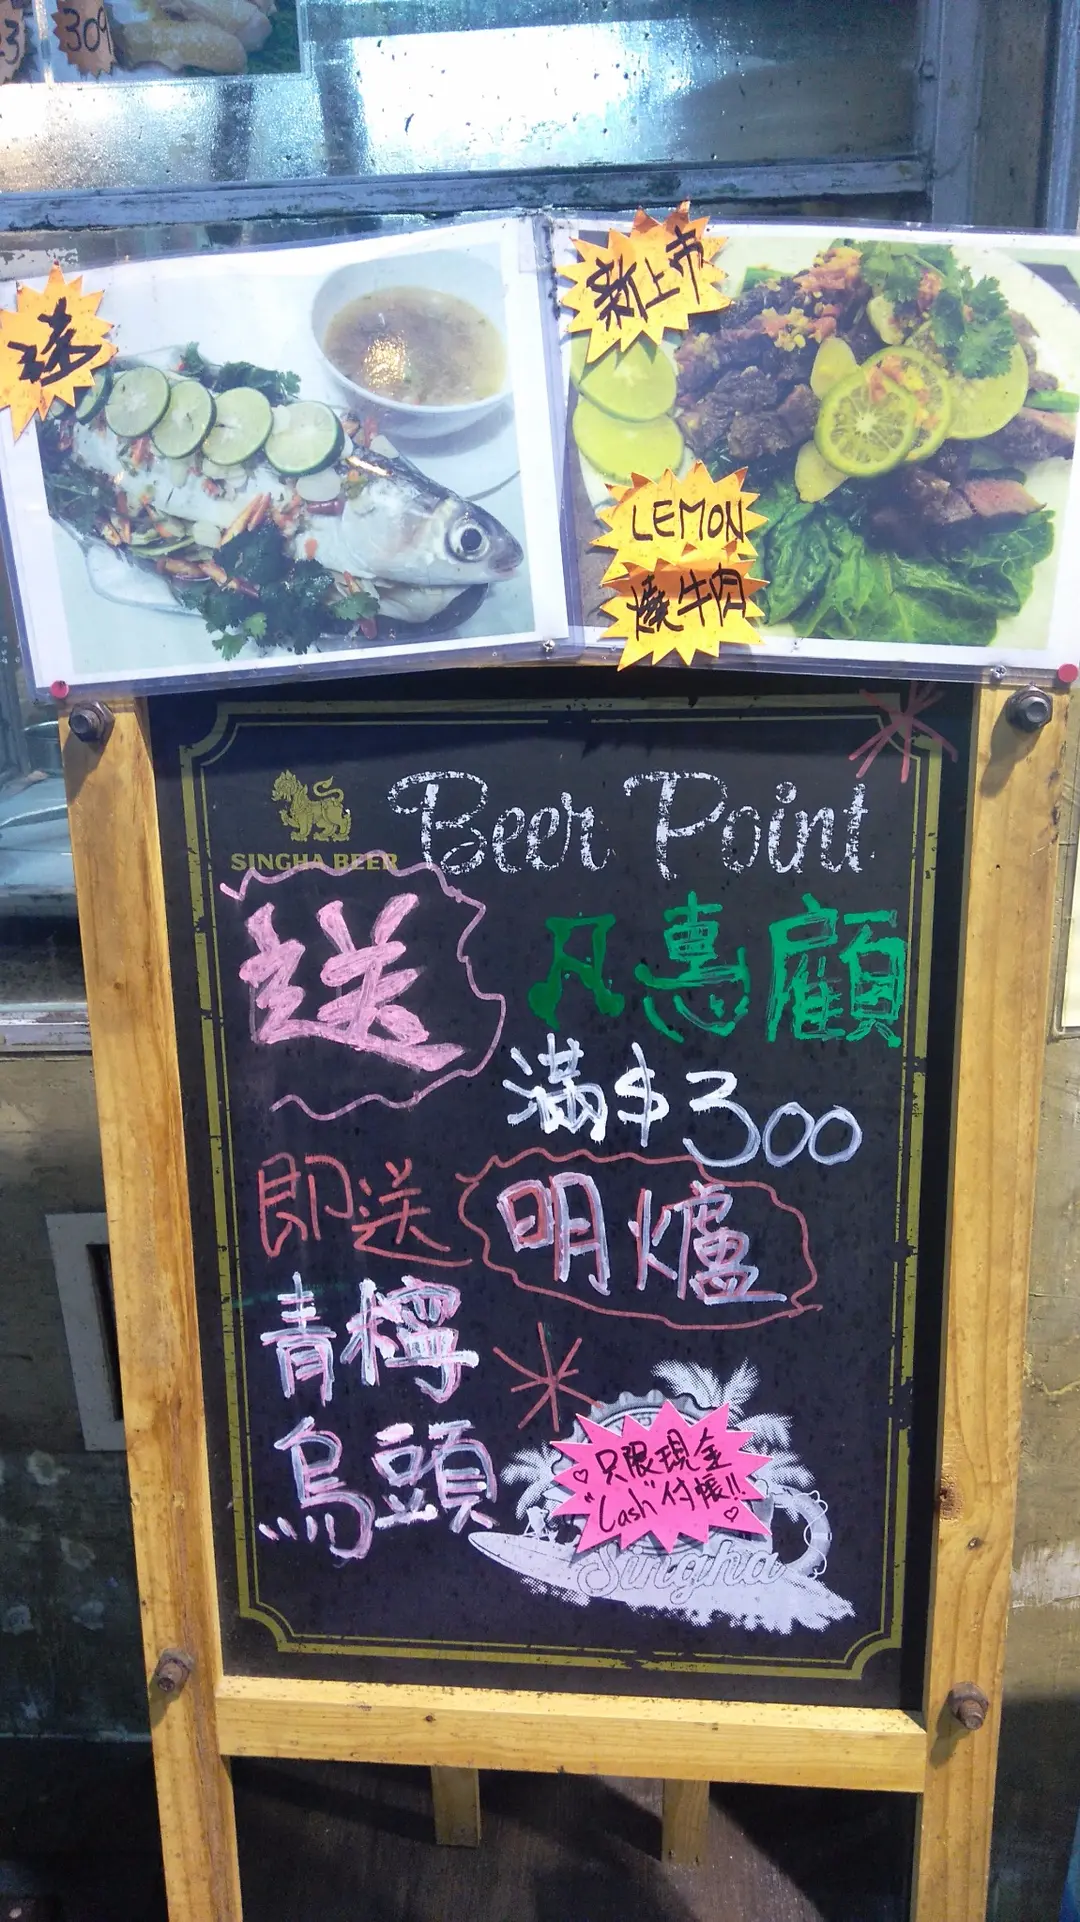 309
送
新上市
LEMON
燒牛肉
SINGHA BEER
Beer Point
送
凡惠顧
滿$300
即送
明爐
青檸
烏頭
只限現金
"Cash"付帳!!
Singha